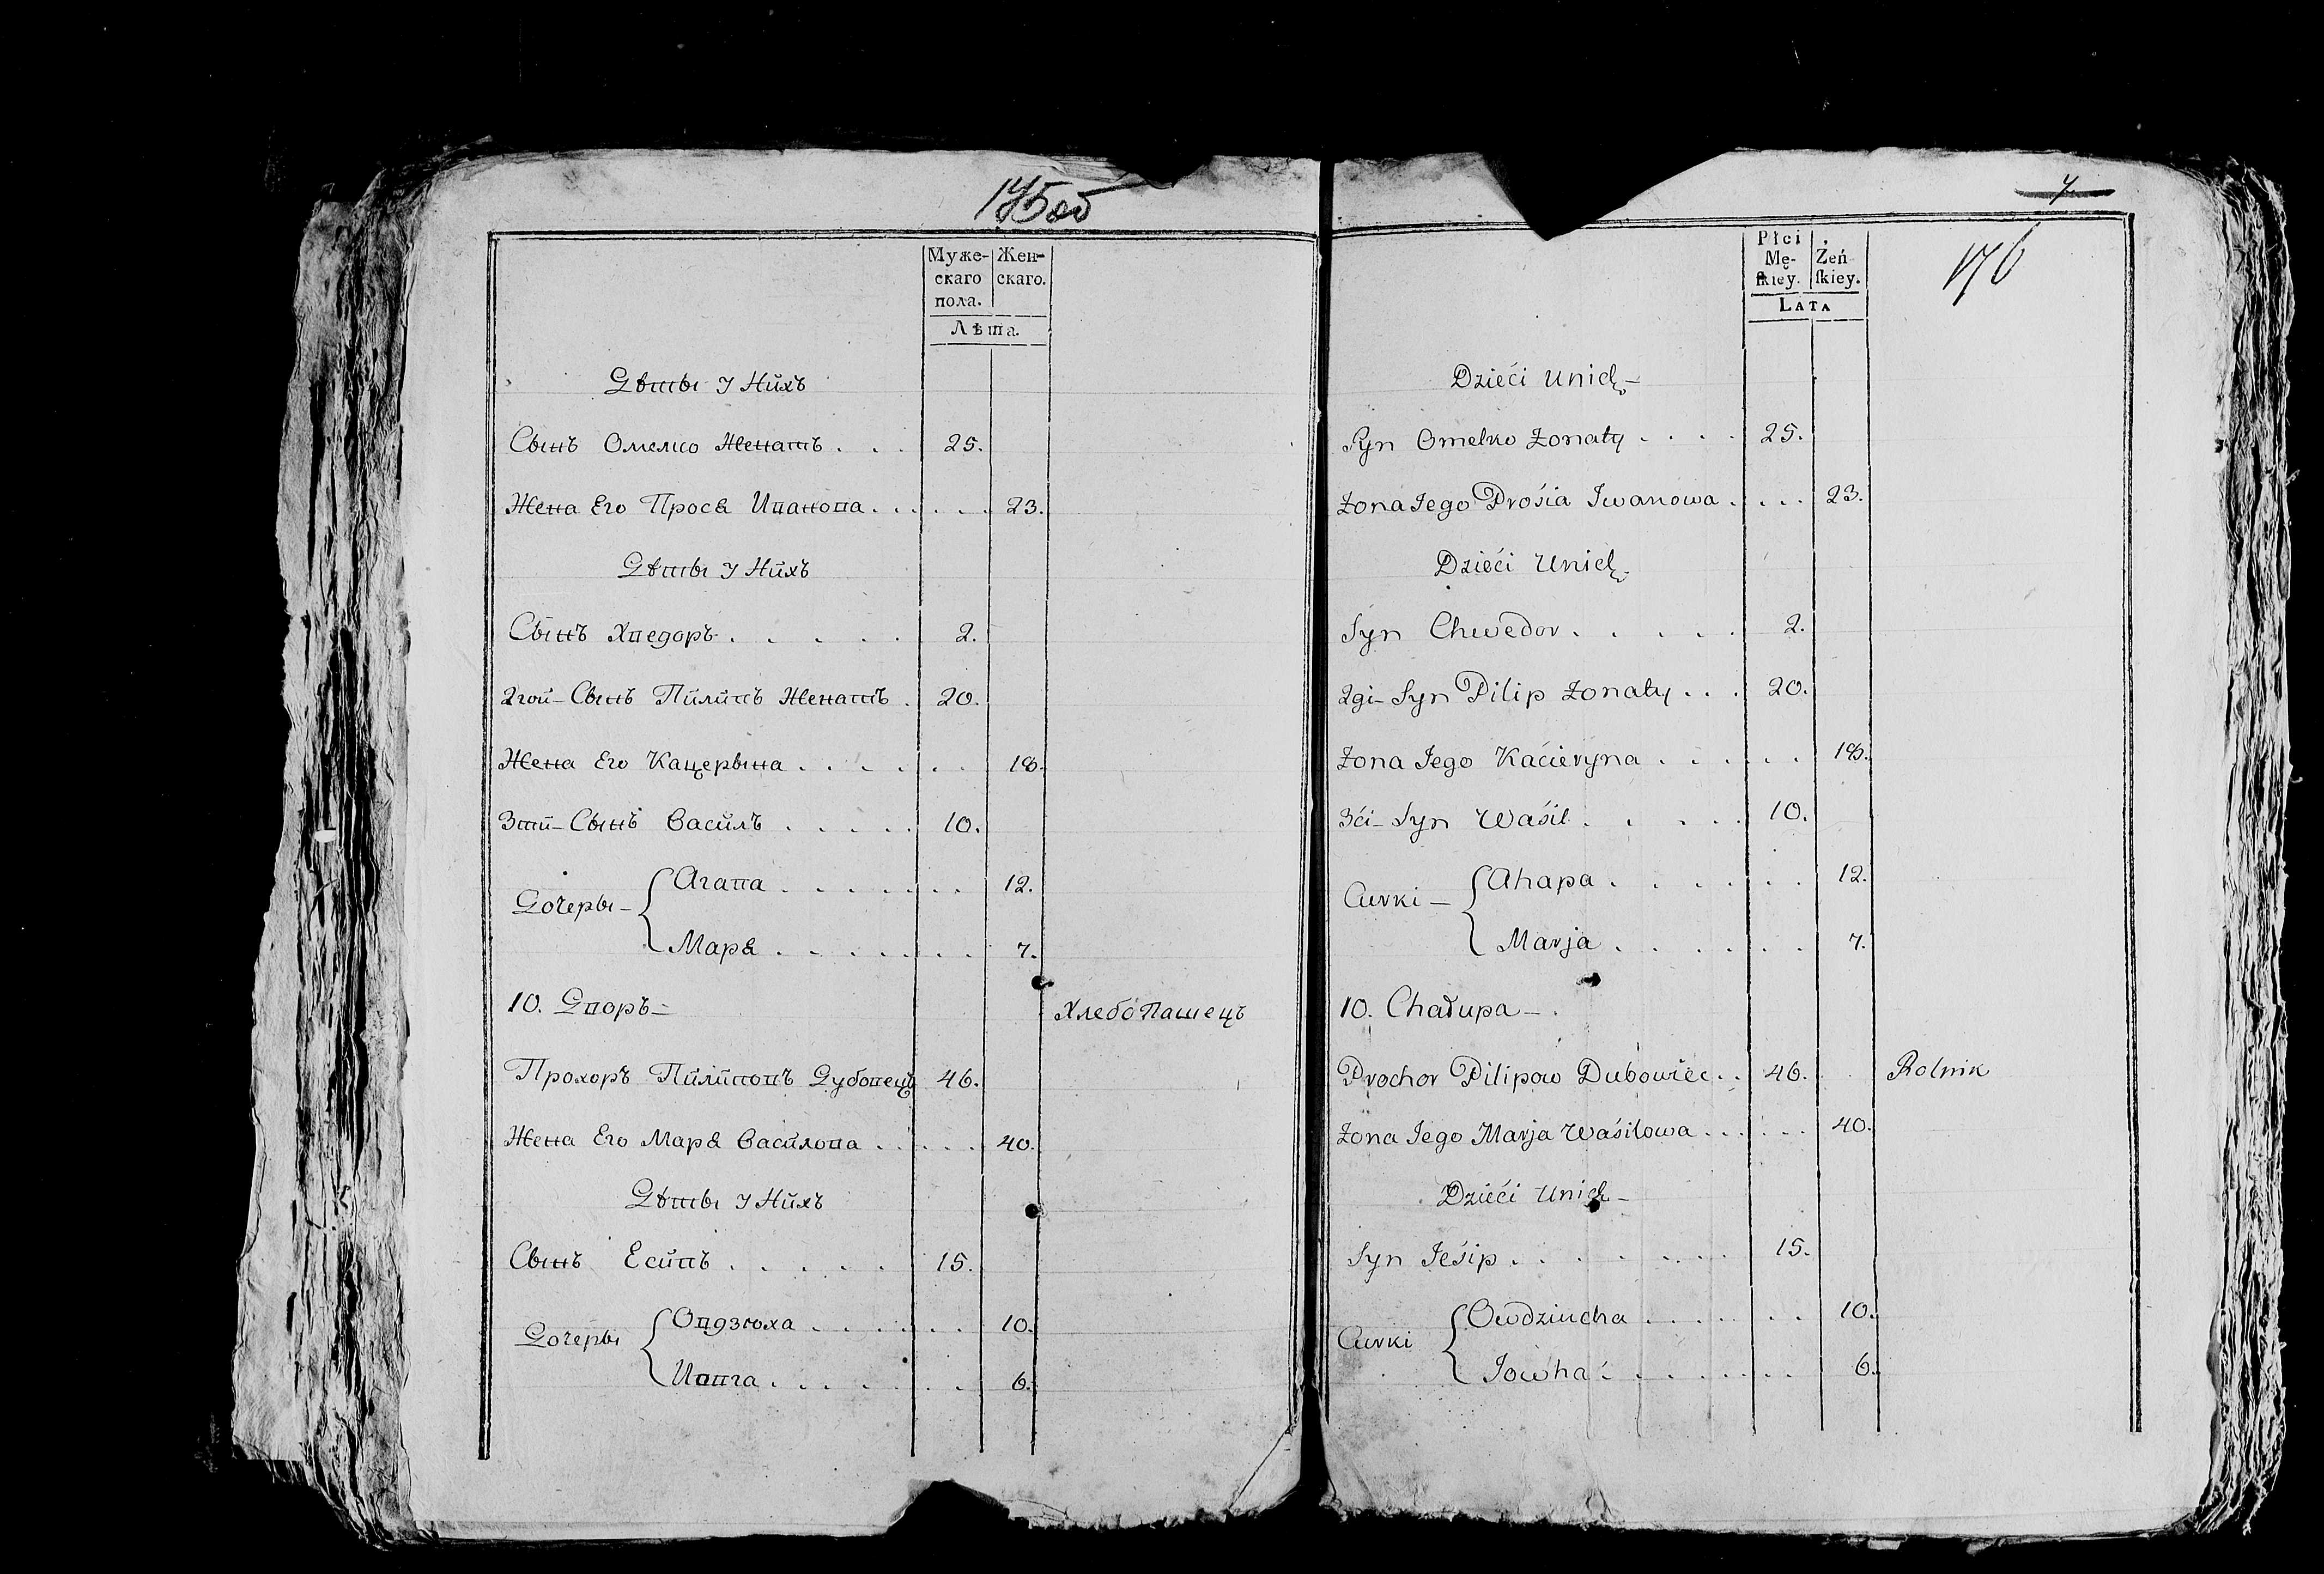 175об
Муже-
скаго
пола.
Жен-
скаго.
Лѣта.
Дѣты у Нихъ
Сынъ Омелко Женатъ . . . 25.
Жена Его Прося Ивановa . . . . . . 23.
Дѣты у Нихъ
Сынъ Хведоръ . . . . . 2.
2гой-Сынъ Пилипъ Женатъ . 20.
Жена Его Кацерына . . . . . . 18.
3тй-Сынъ Василъ . . . . . 10.
Дочеры – Агапа . . . . . . . 12.
Маря . . . . . . . 7.
10. Дворъ – Хлебопашецъ
Прохоръ Пилиповъ Дубовецъ 46.
Жена Его Маря Василова . . . . . 40.
Дѣты у Нихъ
Сынъ Есипъ . . . . . 15.
Дочеры Овдзюха . . . . . . 10.
Иовга . . . . . . . 6.
7
176
Płci
Mę-
ſkiey.
Żeń
ſkiey.
LATA
Dzieći unich –
Syn Omelko żonaty . . . . 25.
Żona Jego Prośia Iwanowa . . . . 23.
Dzieći Unich
Syn Chwedor . . . . . 2.
2gi- Syn Pilip żonaty . . . 20.
Żona Jego Kaćieryna . . . . . 18.
3ći- Syn Waśil . . . . . 10.
Curki – Ahapa . . . . . . . 12.
Marja . . . . . . . 7.
10. Chałupa –
Prochor Pilipow Dubowiec . . 46. Rolnik
Żona Jego Marja Waśilowa . . . . . . 40.
Dzieći Unich –
Syn Jeśip . . . . . . . 15.
Curki Owdziucha . . . . . . 10.
Jowha . . . . . . . . 6.